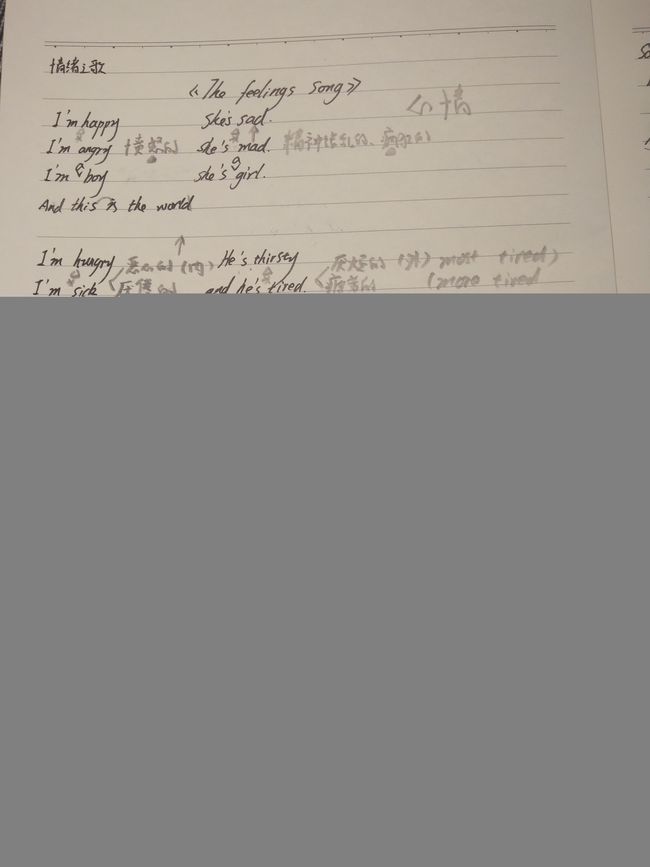 情绪之歌
《The feelings Song》
I'm happy She's sad. 心情
I'm angry 愤怒的 she's mad. 精神错乱的、疯狂的
I'm a boy she's a girl.
And this is the world
I'm hungry 恶心的 (内) He's thirsty 厌大的 (外) most tired)
I'm sick and he's tired. (more tired
So